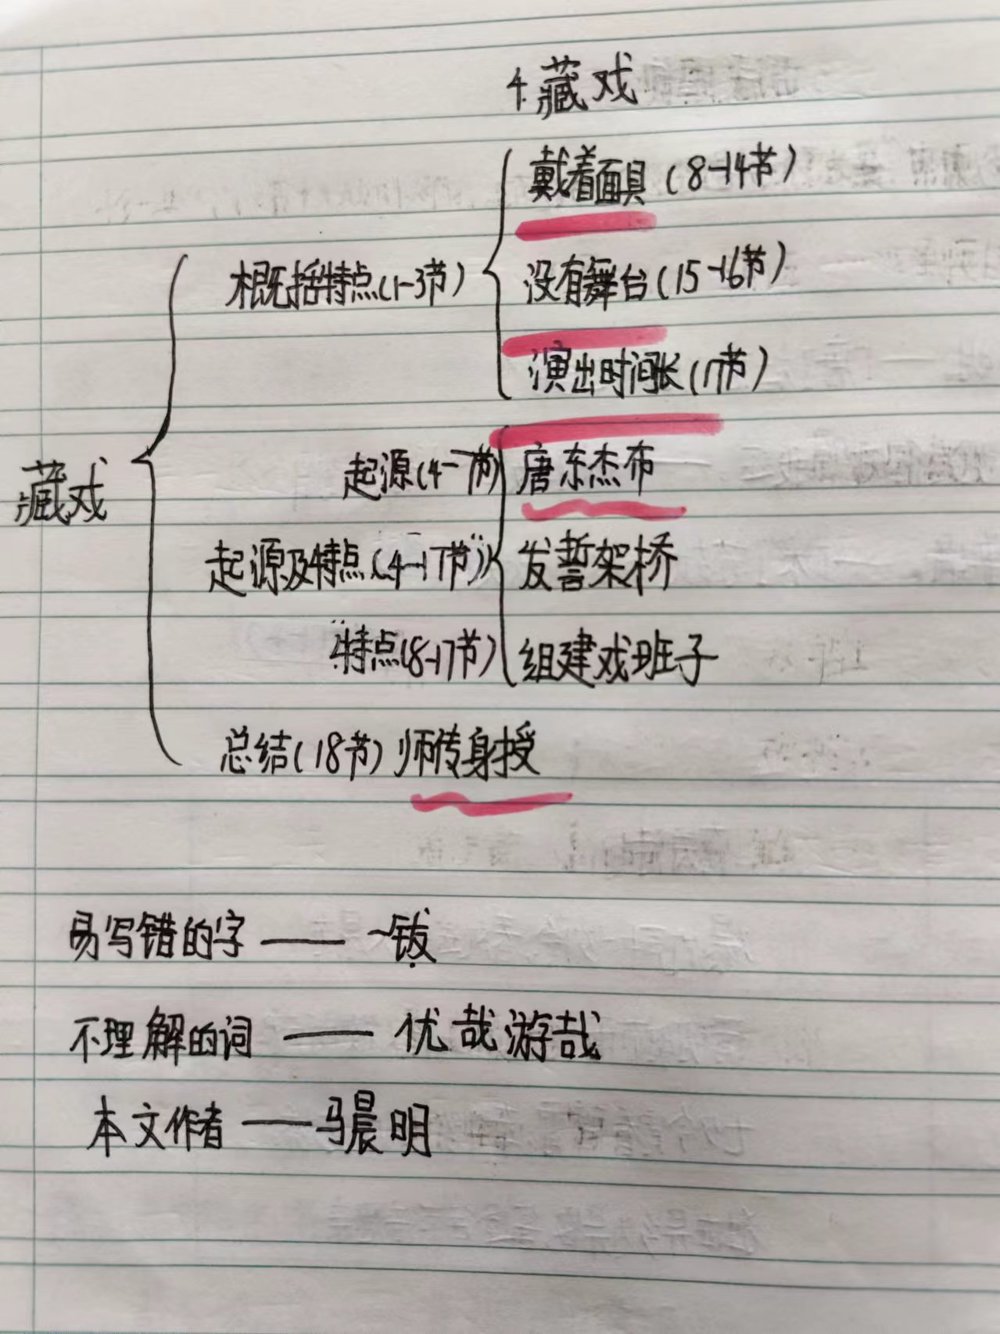 4.藏戏
戴着面具(8-14节)
概括特点(1-3节)
没有舞台(15-16节)
演出时间长(17节)
藏戏
起源(4-7节)
唐东杰布
起源及特点(4-17节)
发誓架桥
特点(8-17节)
组建戏班子
总结(18节)师传身授
易写错的字——钹
不理解的词——优哉游哉
本文作者——马晨明